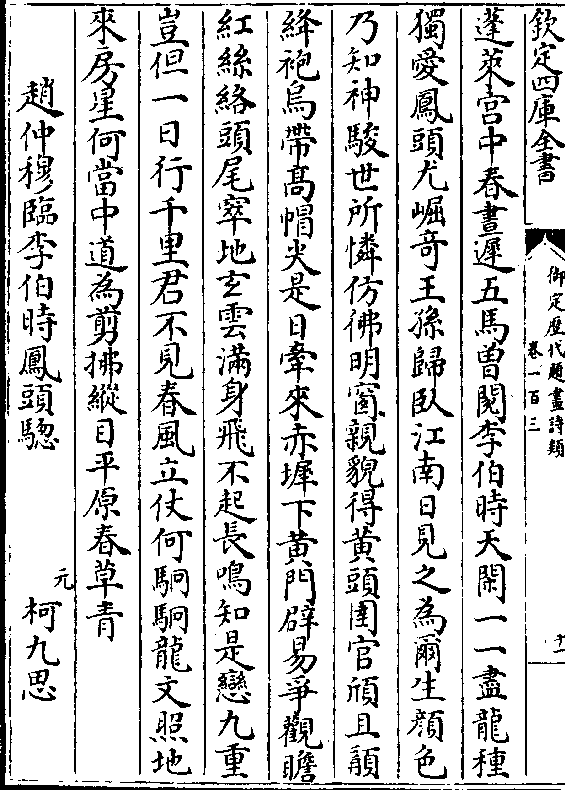 欽定四庫全書
御定歷代題畫詩類
卷一百三
十一
蓬萊宮中春晝遲五馬曽閱李伯時天閑一一盡龍種
獨愛鳳頭尤崛竒王孫歸臥江南日見之為爾生顔色
乃知神駿世所憐仿彿明窗親貌得黄頭圉官頎且
絳袍烏帶髙帽尖是日牽來赤墀下黄門辟易爭觀瞻
紅絲絡頭尾窣地玄雲滿身飛不起長鳴知是戀九重
豈但一日行千里君不見春風立仗何駉駉龍文照地
來房星何當中道為剪拂縱目平原春草青
趙仲穆臨李伯時鳳頭驄
元
柯九思